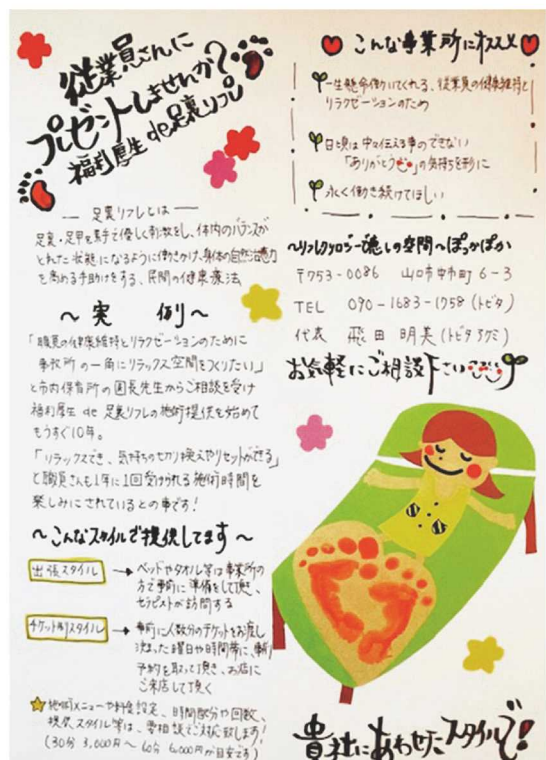 従業員さんに
プレゼントしませんか?
福利厚生 de 足裏リフレ
足裏リフレとは
足裏・足甲を素手で優しく刺激をし、体内のバランスが
とれた状態になるように働きかけ、身体の自然治癒力
を高める手助けをする、民間の健康療法
〜 実 例 〜
「職員の健康維持とリラクゼーションのために
事務所の一角にリラックス空間をつくりたい」
と市内保育所の園長先生からご相談を受け
福利厚生 de 足裏リフレの施術提供を始めて
もうすぐ10年。
「リラックスでき、気持ちの切り換えやリセットができる」
と職員さんも1年に1回受けられる施術時間を
楽しみにされているとの事です!
〜こんなスタイルで提供してます〜
出張スタイル → ベッドやタオル等は事業所の
方で事前に準備をして頂き、
セラピストが訪問する
チケット制スタイル → 事前に人数分のチケットをお渡し
決まった曜日や時間帯に、事前
予約を取って頂き、お店に
ご来店して頂く
☆施術メニューや料金設定、時間配分や回数、
提供スタイル等は、要相談でご対応致します!
(30分 3,000円〜 60分 6,000円が目安です)
こんな事業所にオススメ
一生懸命働いてくれる、従業員の健康維持と
リラクゼーションのため
日頃は中々伝える事のできない
「ありがとう」の気持ちを形に
永く働き続けてほしい
〜リフレクソロジー癒しの空間〜ぽっかぽか
〒753-0086 山口市中市町6-3
TEL 090-1683-1758 (トビタ)
代表 飛田 明美 (トビタ アケミ)
お気軽にご相談下さい
貴社にあわせたスタイルで!